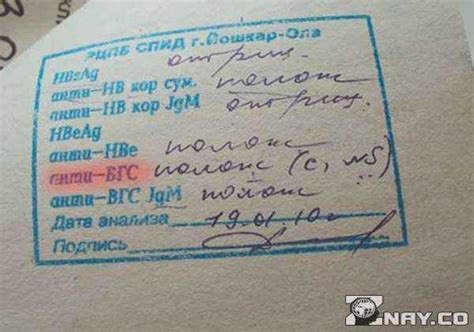 РЦПБ СПИД г.Йошкар-Ола
HBsAg отриц.
анти-HB кор сум. полож
анти-HB кор JgM отриц.
HBeAg
анти-HBe полож
анти-ВГС полож (с, NS)
анти-ВГС JgM полож
Дата анализа 19.01.10г
Подпись
ZNAY.CO